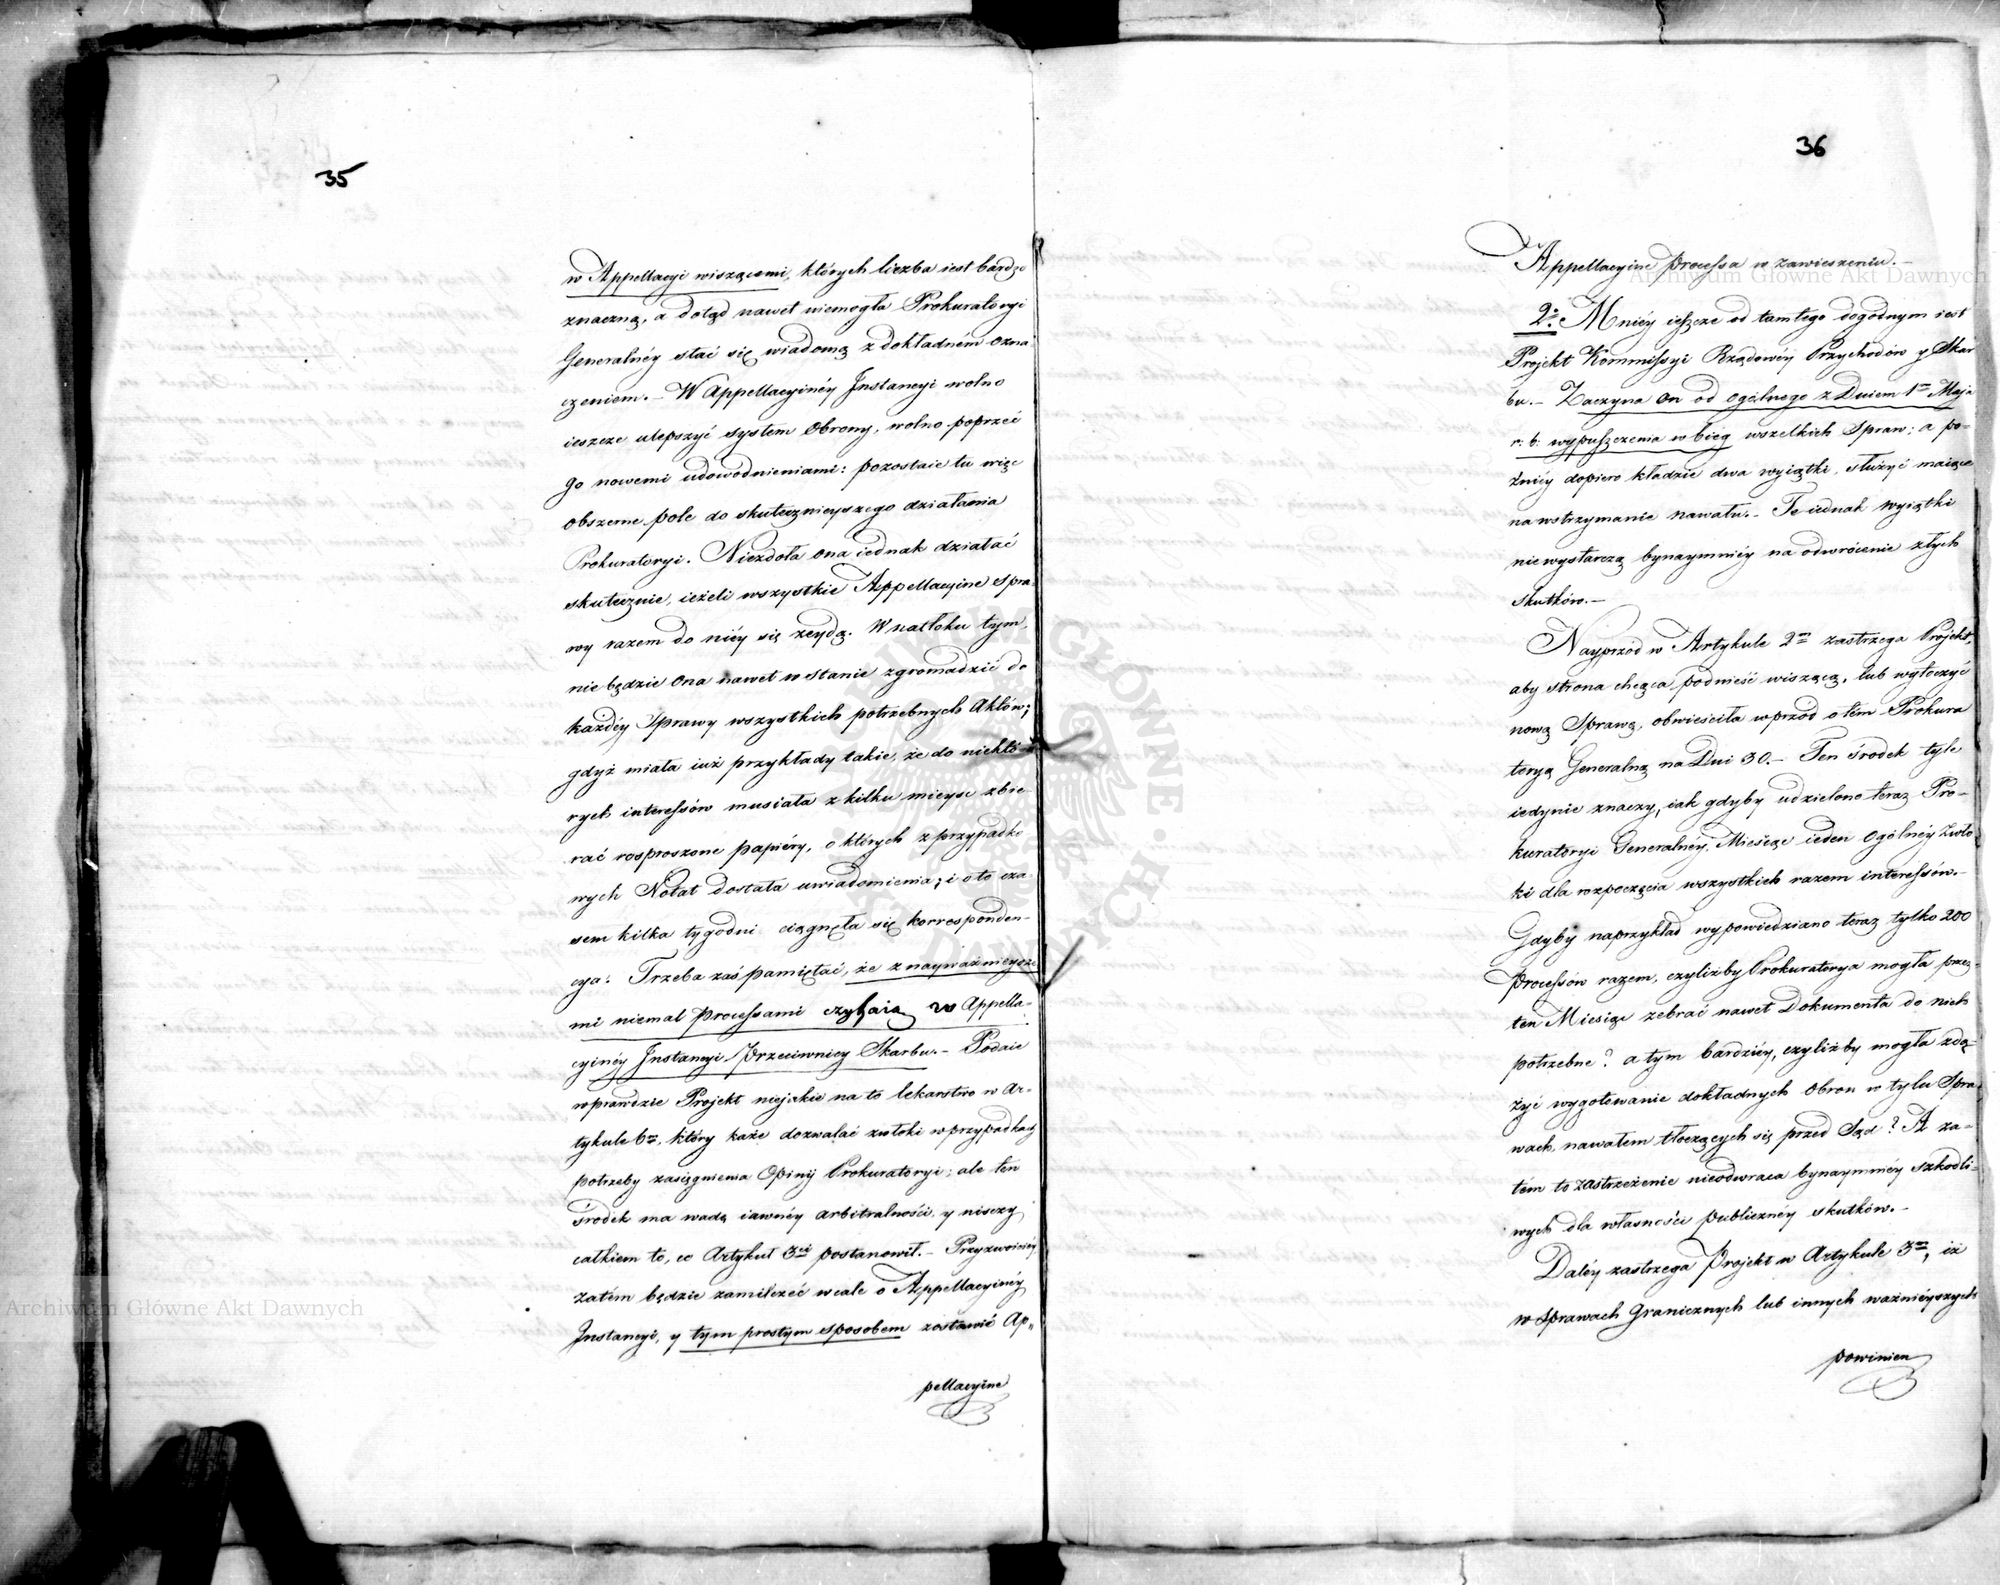 35
w Appellacyi wiszącemi, których liczba iest bardzo
znaczną, a dotąd nawet niemogła Prokuratoryi
Generalnéy stać się wiadomą z dokładném ozna
czeniem. – W Appellacyinéy Instancyi wolno
ieszcze ulepszyć system Obrony, wolno poprzeć
go nowemi udowodnieniami: pozostaie tu więc
obszerne pole do skutecznieyszego działania
Prokuratoryi. Niezdoła ona iednak działać
skutecznie, ieżeli wszystkie Appellacyine spra-
wy razem do niéy się zeydą. W natłoku tym,
nie będzie ona nawet w stanie zgromadzić do
każdéy sprawy wszystkich potrzebnych Aktów;
gdyż miała iuż przykłady takie, że do niektó-
rych interessów musiała z kilku mieysc zbie-
rać rosproszone papiéry, o których z przypadko
wych Notat dostała uwiadomienia; i o to cza-
sem kilka tygodni ciągnęła się korresponden-
cya. Trzeba zaś pamiętać, że z nayważnieysze
mi niemal processami czyhaią w Appella-
cyinéy Instancyi Przeciwnicy Skarbu. – Podaie
wprawdzie Projekt niejakie na to lekarstwo w Ar-
tykule 6m, który każe dozwalać zwłoki w przypadkach
potrzeby zasiągnienia Opinij Prokuratoryi; ale ten
środek ma wadę iawnéy arbitralności, y niszczy
całkiem to, co Artykuł 3ci postanowił. – Przyzwoiciéy
zatém będzie zamilczéć wcale o Appellacyinéy
Instancyi, y tym prostym sposobem zostawić Ap„
pellacyine
36
Appellacyine Processa w zawieszeniu. –
2. Mniéy ieszcze od tamtego dogodnym iest
Projekt Kommissyi Rządowéy Przychodów y Skar
bu. – Zaczyna on od ogólnego z Dniem 1m Maja
r: b: wypuszczenia w biég wszelkich Spraw; a po-
źniéy dopiero kładzie dwa wyiątki, służyć maiące
na wstrzymanie nawału. – Te iednak wyiątki
niewystarczą bynaymniéy na odwrócenie złych
skutków. –
Nayprzód w Artykule 2m zastrzega Projekt,
aby strona chcąca podnieść wiszącą, lub wytoczyć
nową Sprawę, obwieściła wprzód o tém Prokura
toryą Generalną na Dni 30. – Ten środek tyle
iedynie znaczy, iak gdyby udzielono teraz Pro-
kuratoryi Generalnéy Miesiąc ieden ogólnéy zwło
ki dla rozpoczęcia wszystkich razem interessów. –
Gdyby naprzykład wypowiedziano teraz tylko 200
Processów razem, czyliżby Prokuratorya mogła przez
ten Miesiąc zebrać nawet Dokumenta do nich
potrzebne? a tym bardziéy, czyliżby mogła zdą-
żyć wygotowanie dokładnych Obron w tylu Spra
wach, nawałem tłoczących się przed Sąd? A za-
tém to zastrzeżenie nieodwraca bynaymniéy szkodli-
wych dla własności publicznéy skutków. –
Daléy zastrzega Projekt w Artykule 3m, iż
w Sprawach Granicznych lub innych ważniéyszych
powinien
Archiwum Główne Akt Dawnych
Archiwum Główne Akt Dawnych
ARCHIWUM GŁÓWNE AKT DAWNYCH